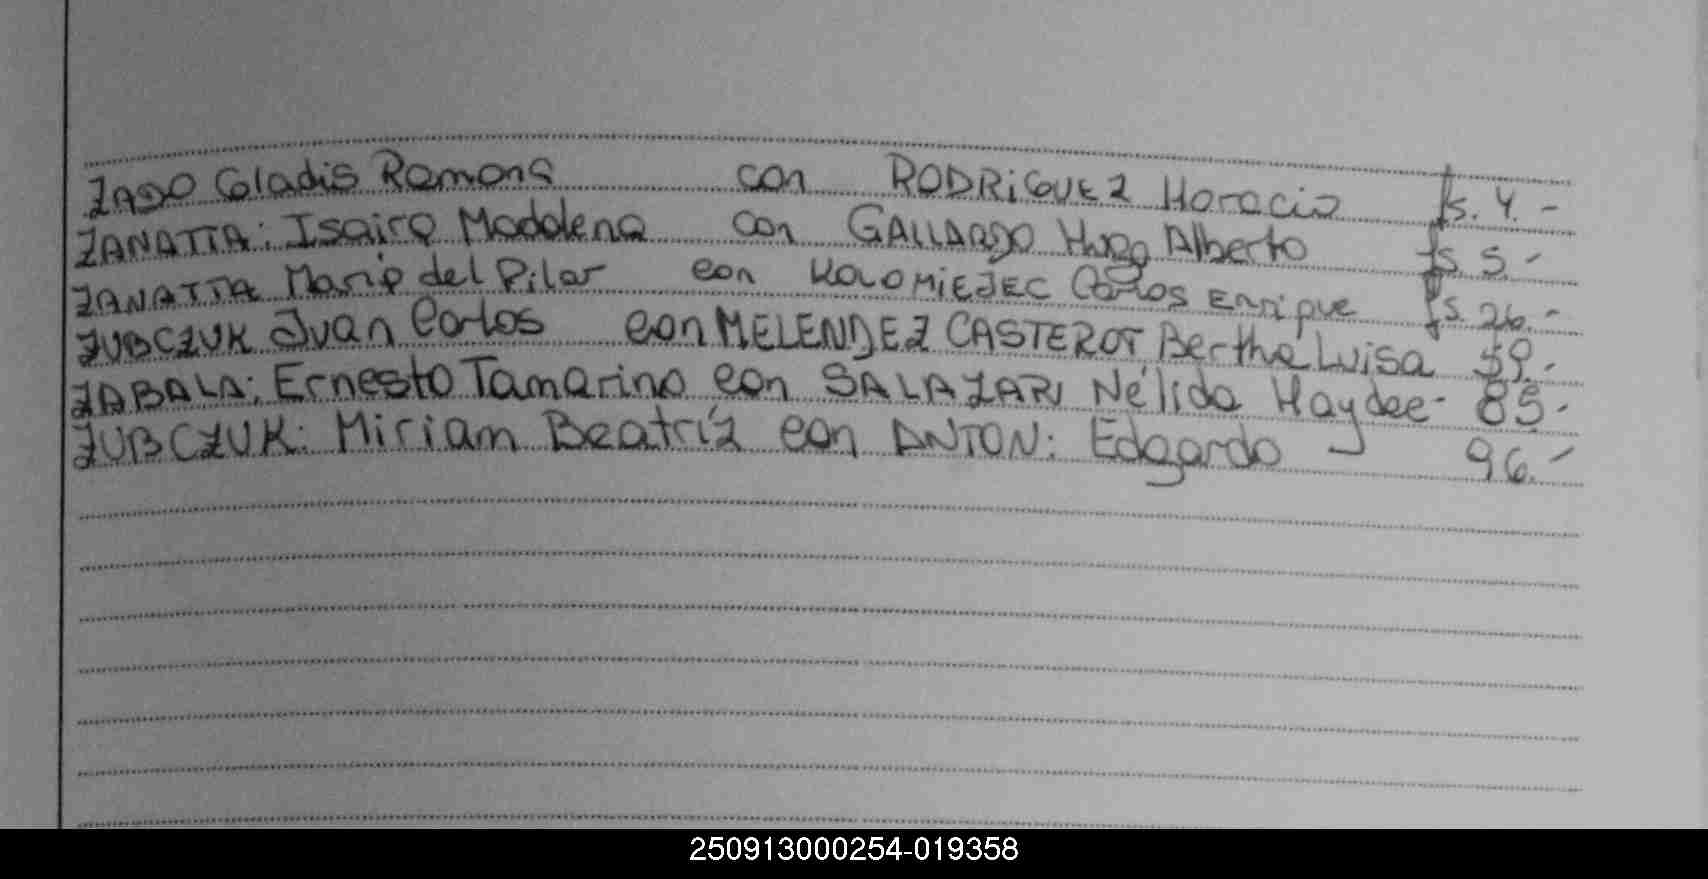 ZAGO Gladis Ramona con RODRiGUEZ Horacio fs. 4.-
ZANATTA: Isaira Maddalena con GALLARDO Hugo Alberto fs 5.-
ZANATTA Maria del Pilar con KOLOMIEJEC Carlos Enrique fs. 26.-
ZUBCZUK Juan Carlos con MELENDEZ CASTEROT Bertha Luisa 59.-
ZABALA: Ernesto Tamarino con SALAZAR Nélida Haydee- 85.-
ZUBCZUK: Miriam Beatríz con ANTON: Edgardo 96.-
250913000254-019358